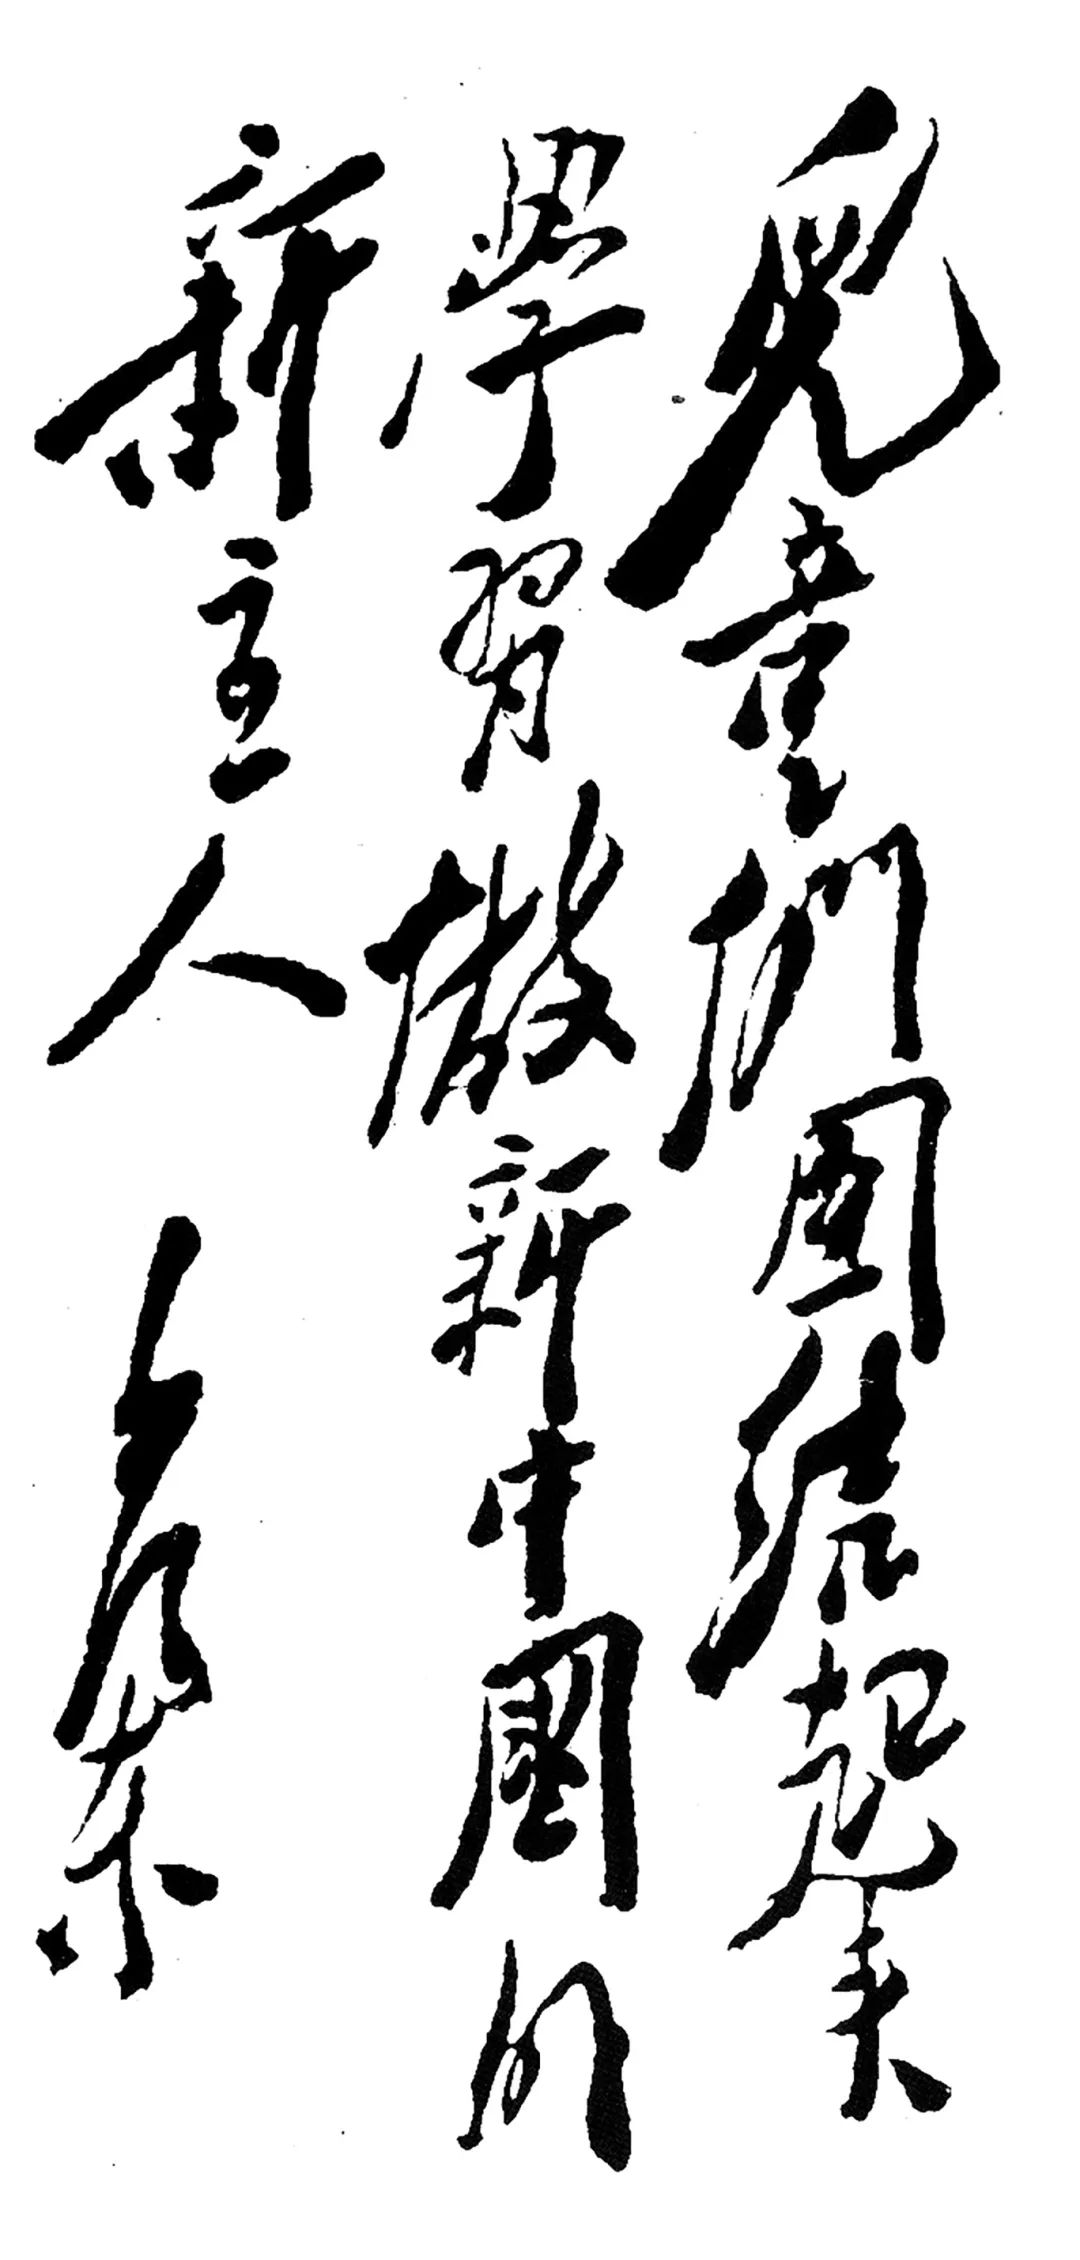 兒童們團結起來
學習做新中國的
新主人
毛澤東